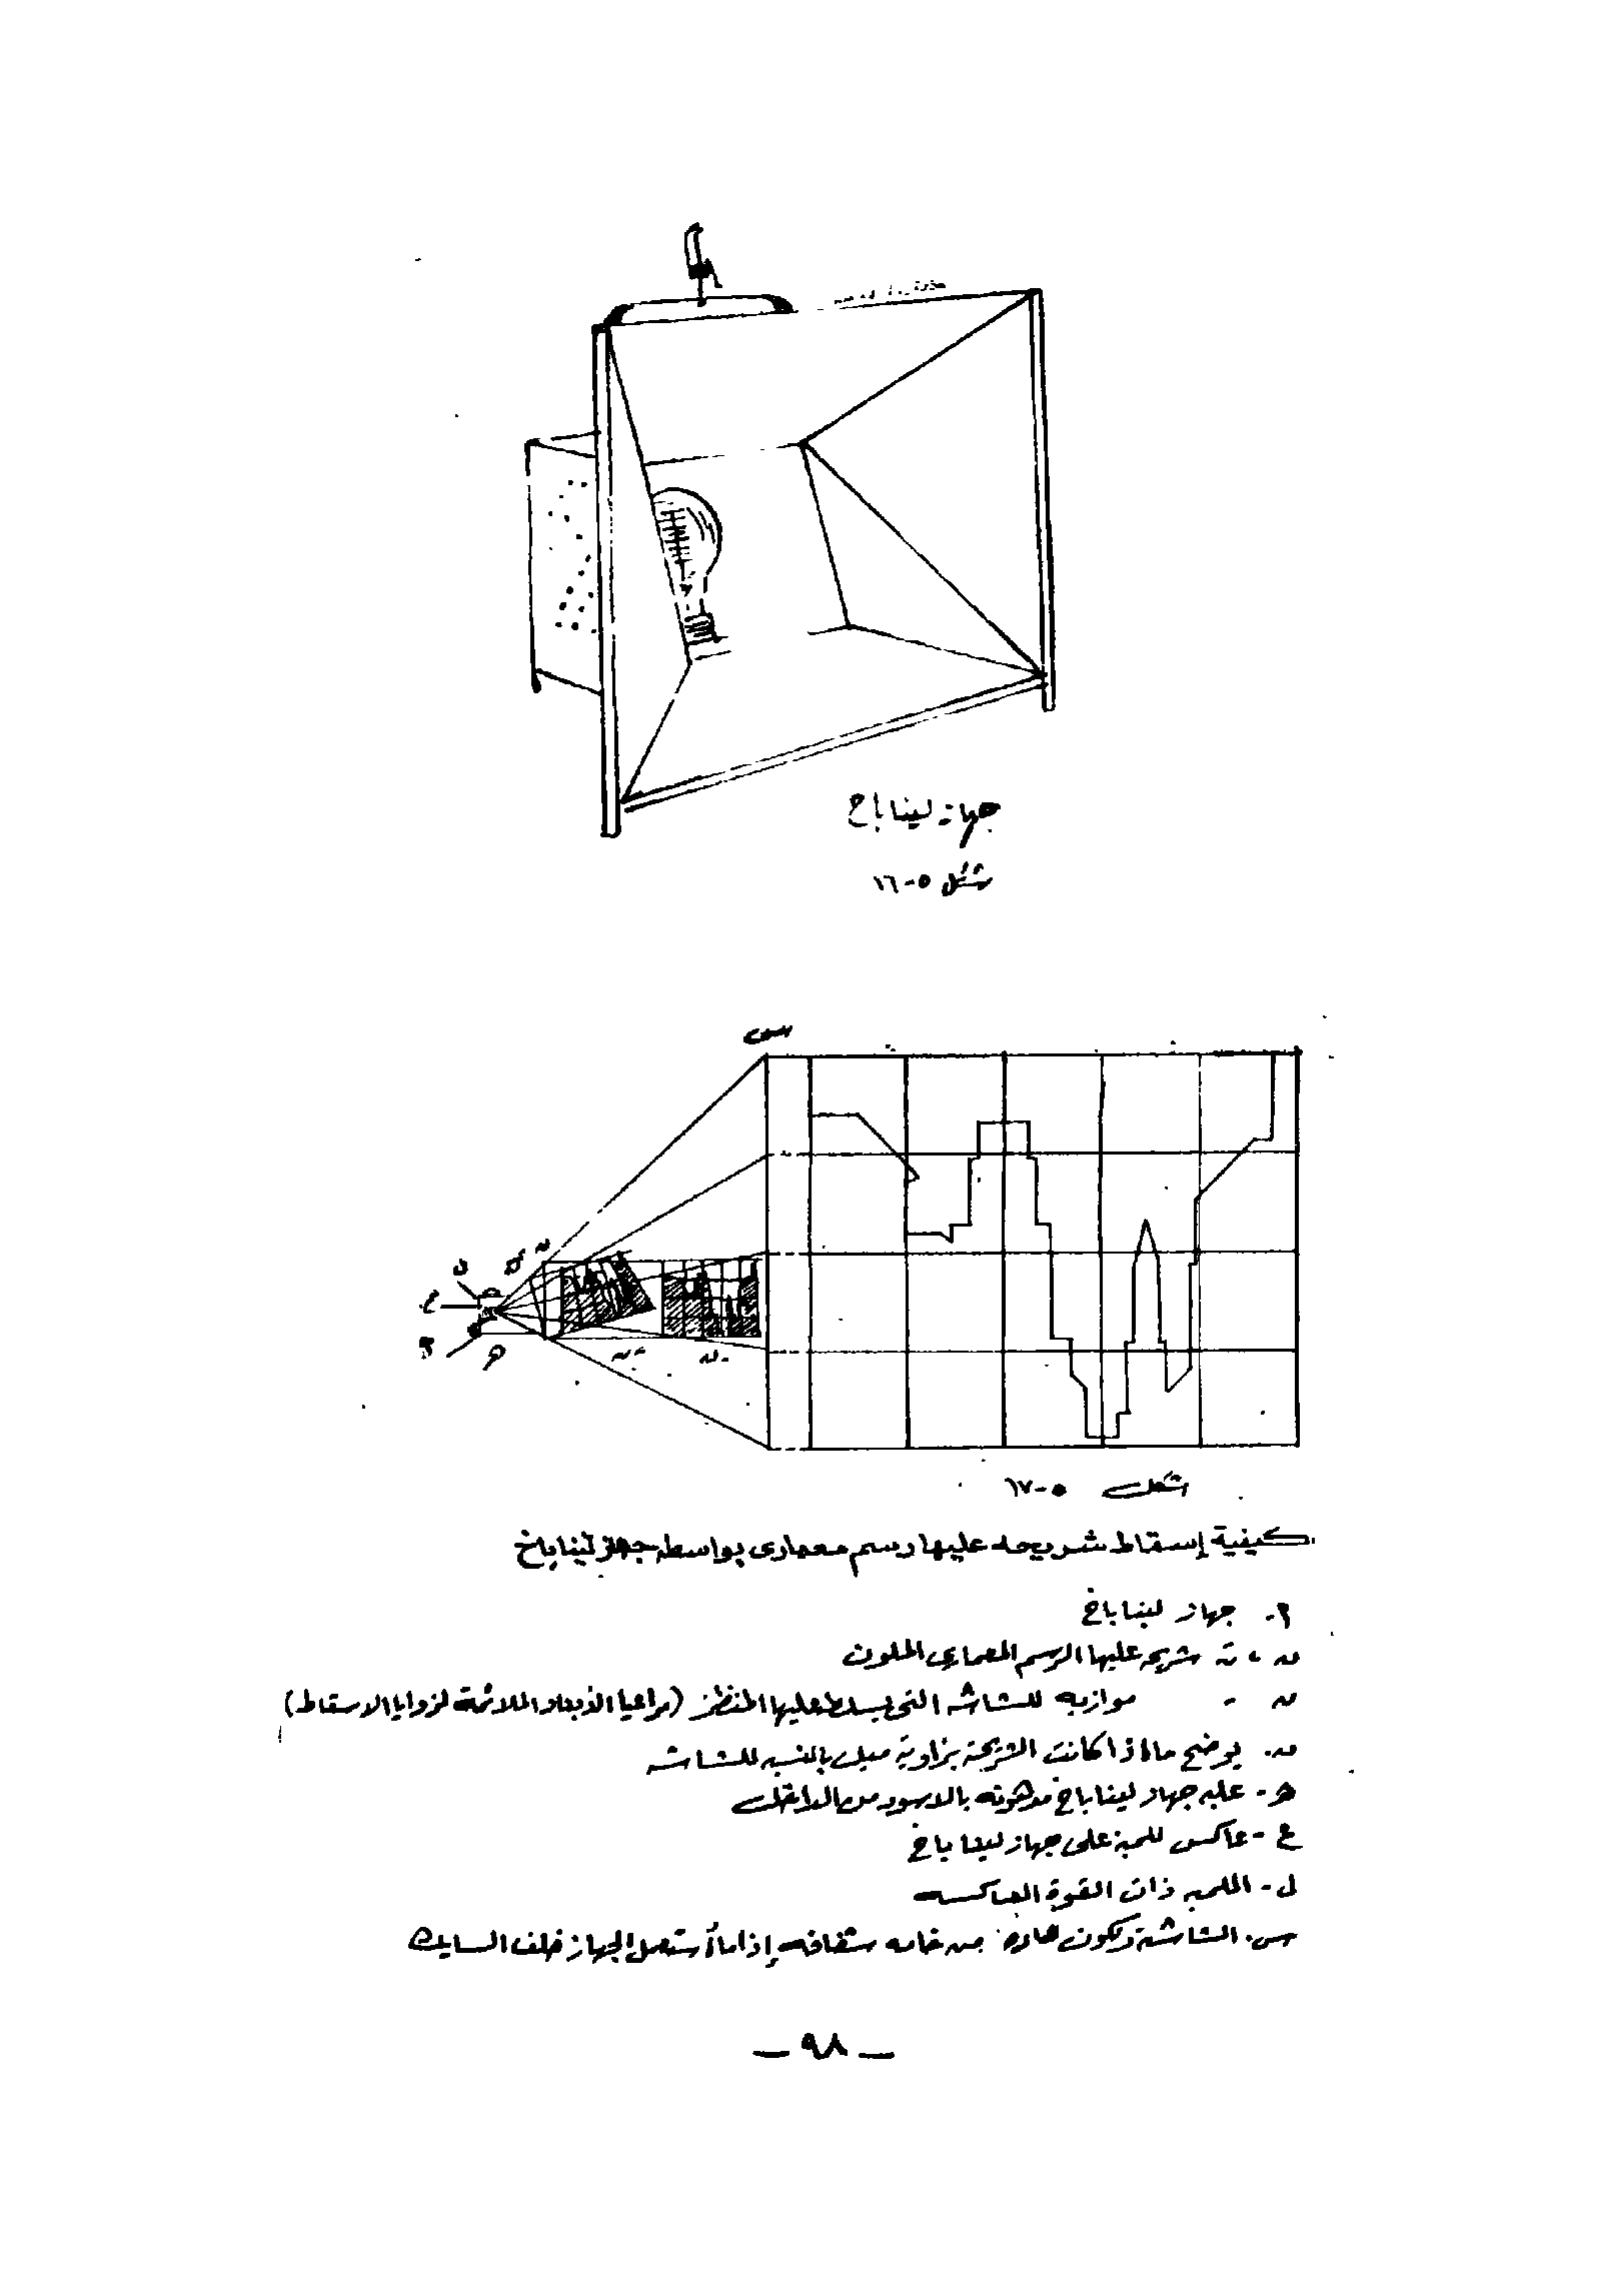 جهاز ليناباخ
شكل ٥-١٦
س
ل
ع
هـ
شكل ٥-١٧
كيفية إسقاط شريحه عليها رسم معمارى بواسطه جهاز ليناباخ
٢- جهاز ليناباخ
شريحه عليها الرسم المعمارى الملون
موازيه للشاشه التى يسلط عليها المنظر (مراعيا الأبعاد الملائمة لزوايا الاسقاط)
يوضح ما اذا كانت الشريحة بزاوية ميل بالنسبه للشاشه
هـ - علبه جهاز ليناباخ مدهونه بالاسود من الداخل
ع - عاكس للمبة على جهاز ليناباخ
ل - اللمبه ذات القوة العاكسه
س - الشاشة وتكون عاده من خامه شفافه إذا ما أستعمل الجهاز خلف السايك
— ٩٨ —